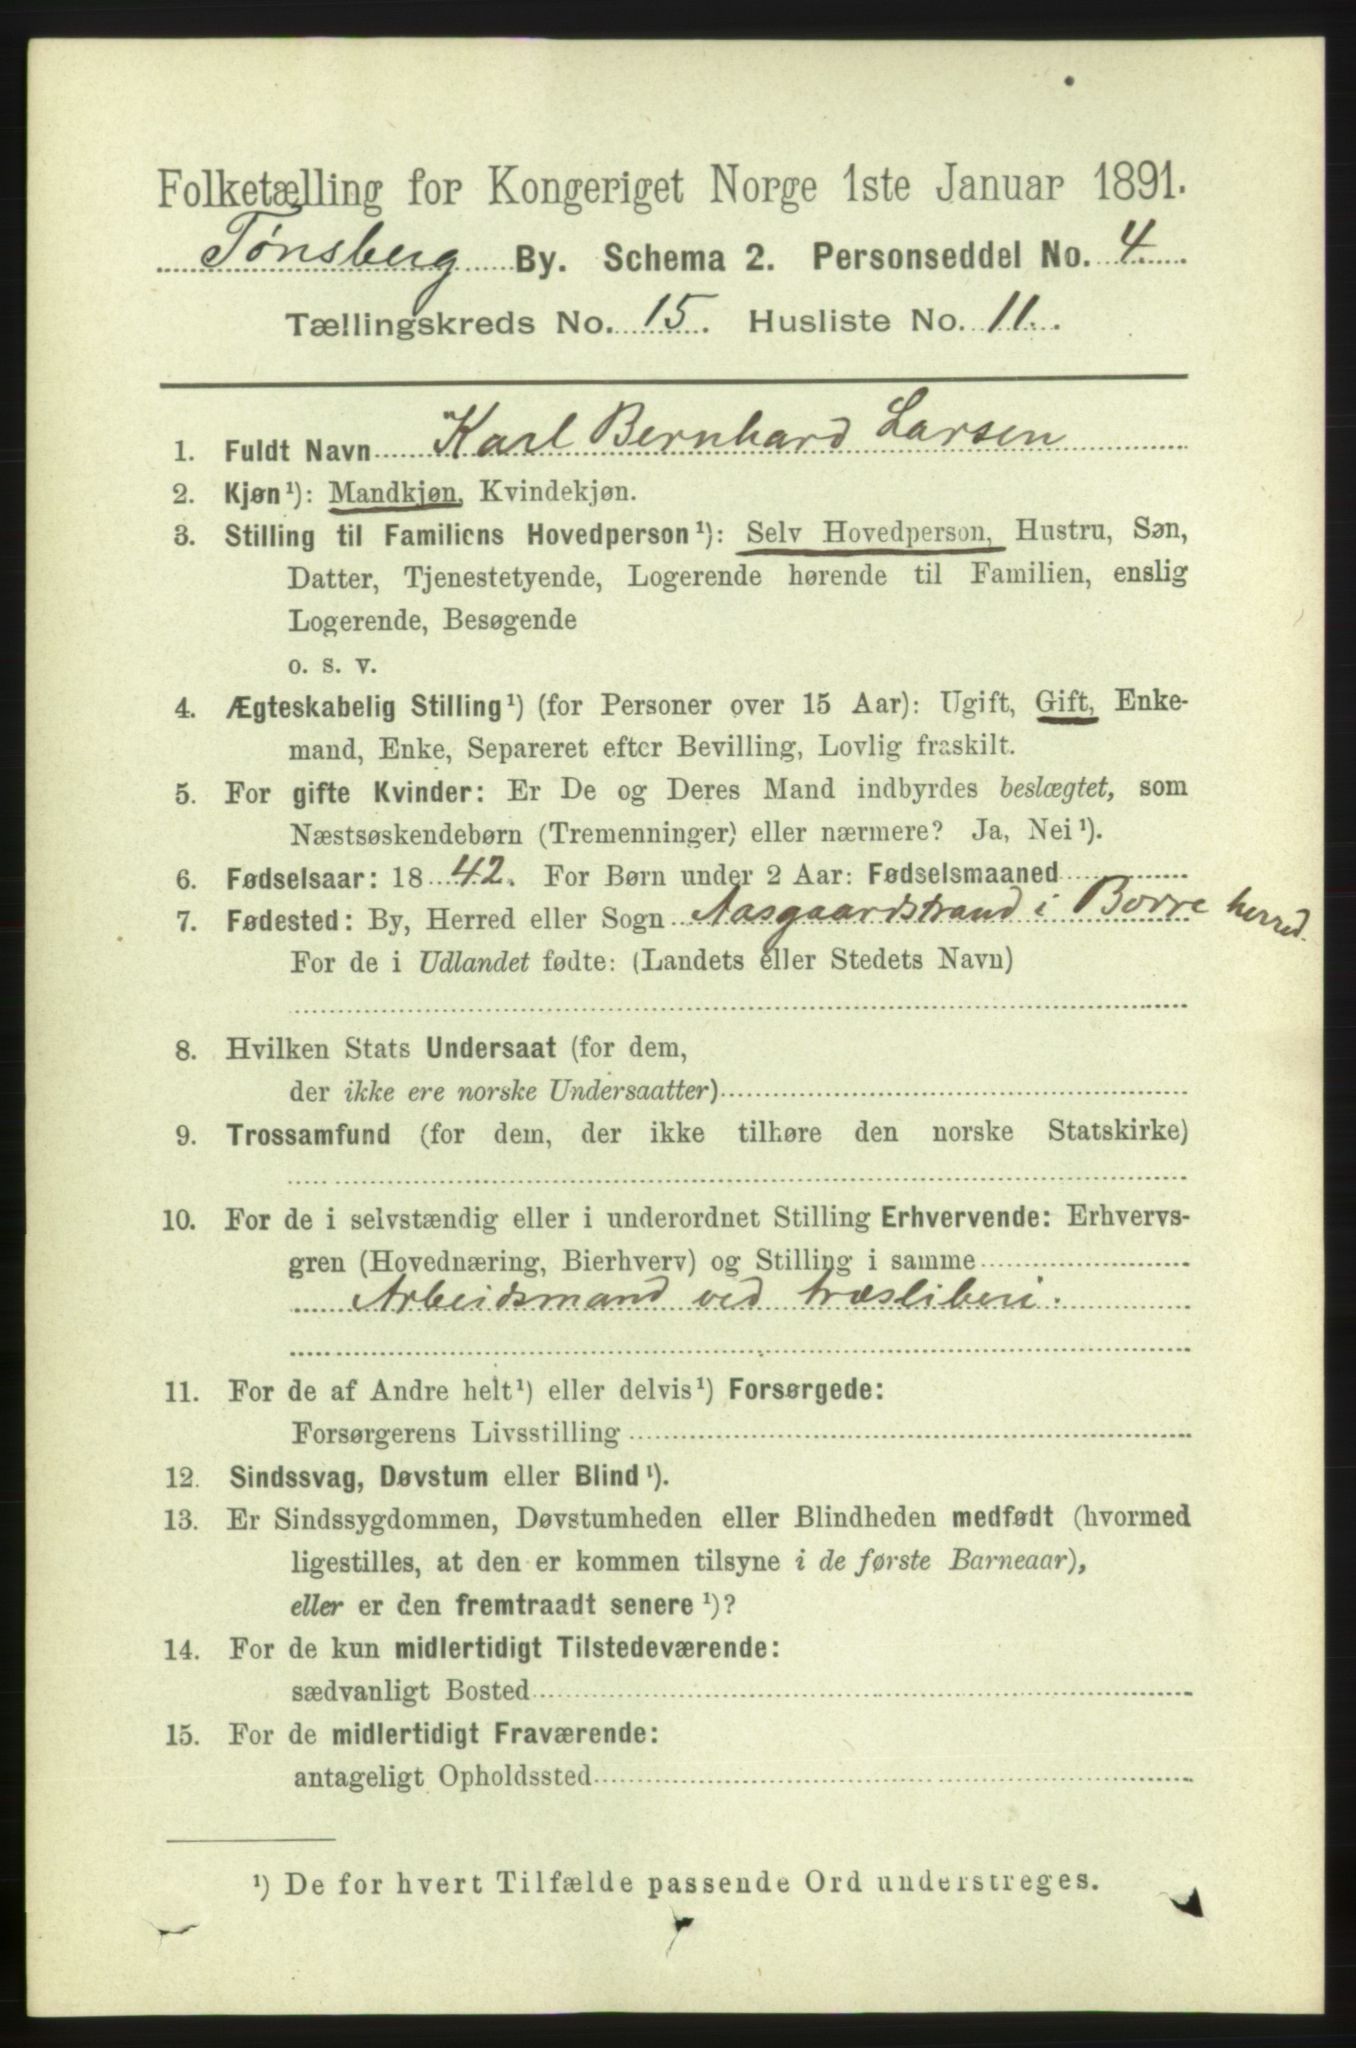 Folketælling for Kongeriget Norge 1ste Januar 1891.
Tønsberg By. Schema 2. Personseddel No. 4
Tællingskreds No. 15. Husliste No. 11.
1. Fuldt Navn Karl Bernhard Larsen
2. Kjøn¹): Mandkjøn, Kvindekjøn.
3. Stilling til Familiens Hovedperson¹): Selv Hovedperson, Hustru, Søn,
Datter, Tjenestetyende, Logerende hørende til Familien, enslig
Logerende, Besøgende
o. s. v.
4. Ægteskabelig Stilling¹) (for Personer over 15 Aar): Ugift, Gift, Enke-
mand, Enke, Separeret efter Bevilling, Lovlig fraskilt.
5. For gifte Kvinder: Er De og Deres Mand indbyrdes beslægtet, som
Næstsøskendebørn (Tremenninger) eller nærmere? Ja, Nei¹).
6. Fødselsaar: 1842. For Børn under 2 Aar: Fødselsmaaned
7. Fødested: By, Herred eller Sogn Aasgaardstrand i Borre herred.
For de i Udlandet fødte: (Landets eller Stedets Navn)
8. Hvilken Stats Undersaat (for dem,
der ikke ere norske Undersaatter)
9. Trossamfund (for dem, der ikke tilhøre den norske Statskirke)
10. For de i selvstændig eller i underordnet Stilling Erhvervende: Erhvervs-
gren (Hovednæring, Bierhverv) og Stilling i samme
Arbeidsmand ved træsliberi.
11. For de af Andre helt¹) eller delvis¹) Forsørgede:
Forsørgerens Livsstilling
12. Sindssvag, Døvstum eller Blind¹).
13. Er Sindssygdommen, Døvstumheden eller Blindheden medfødt (hvormed
ligestilles, at den er kommen tilsyne i de første Barneaar),
eller er den fremtraadt senere¹)?
14. For de kun midlertidigt Tilstedeværende:
sædvanligt Bosted
15. For de midlertidigt Fraværende:
antageligt Opholdssted
¹) De for hvert Tilfælde passende Ord understreges.